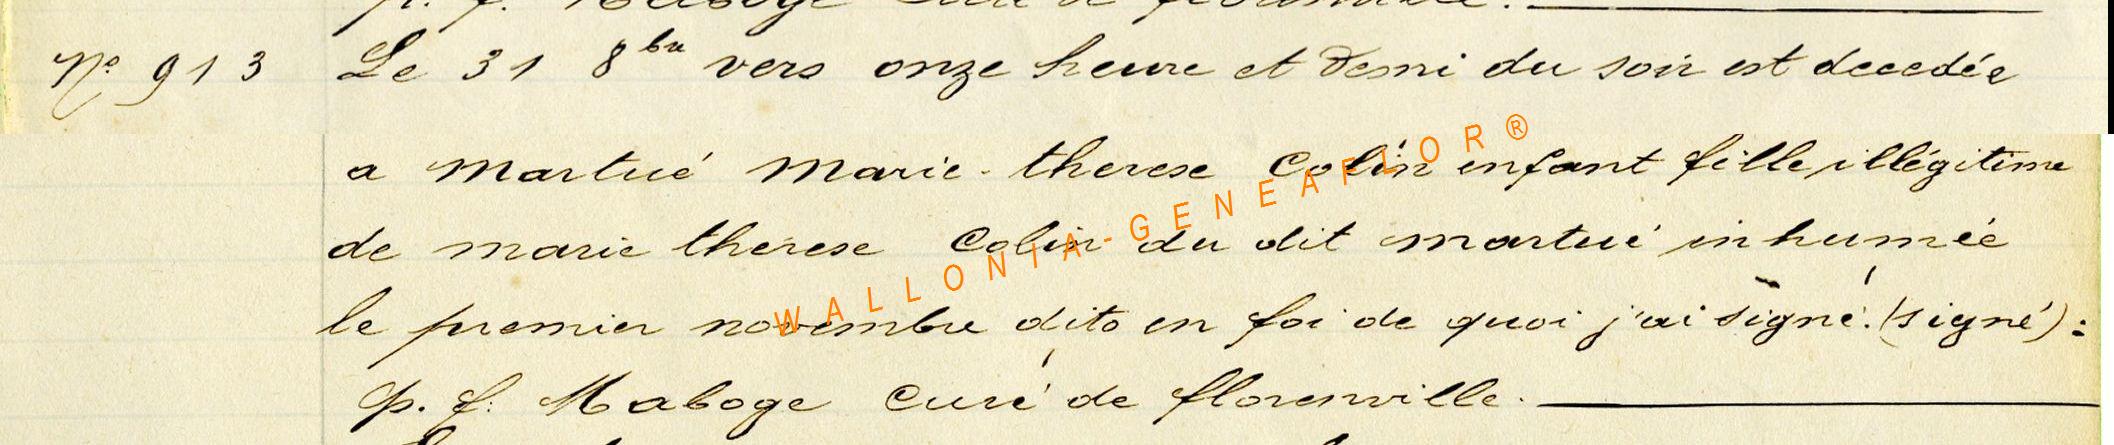 p. f. Maboge Curé de florenville.
N° 913 Le 31 8bre vers onze heure et demi du soir est decedée
a Martué Marie-therese Colin enfant fille illégitime
de marie therese Colin du dit martué inhumée
le premier novembre dito en foi de quoi j'ai signé. (signé):
p. f. Maboge Curé de florenville.
WALLONIA-GENEAFLOR®